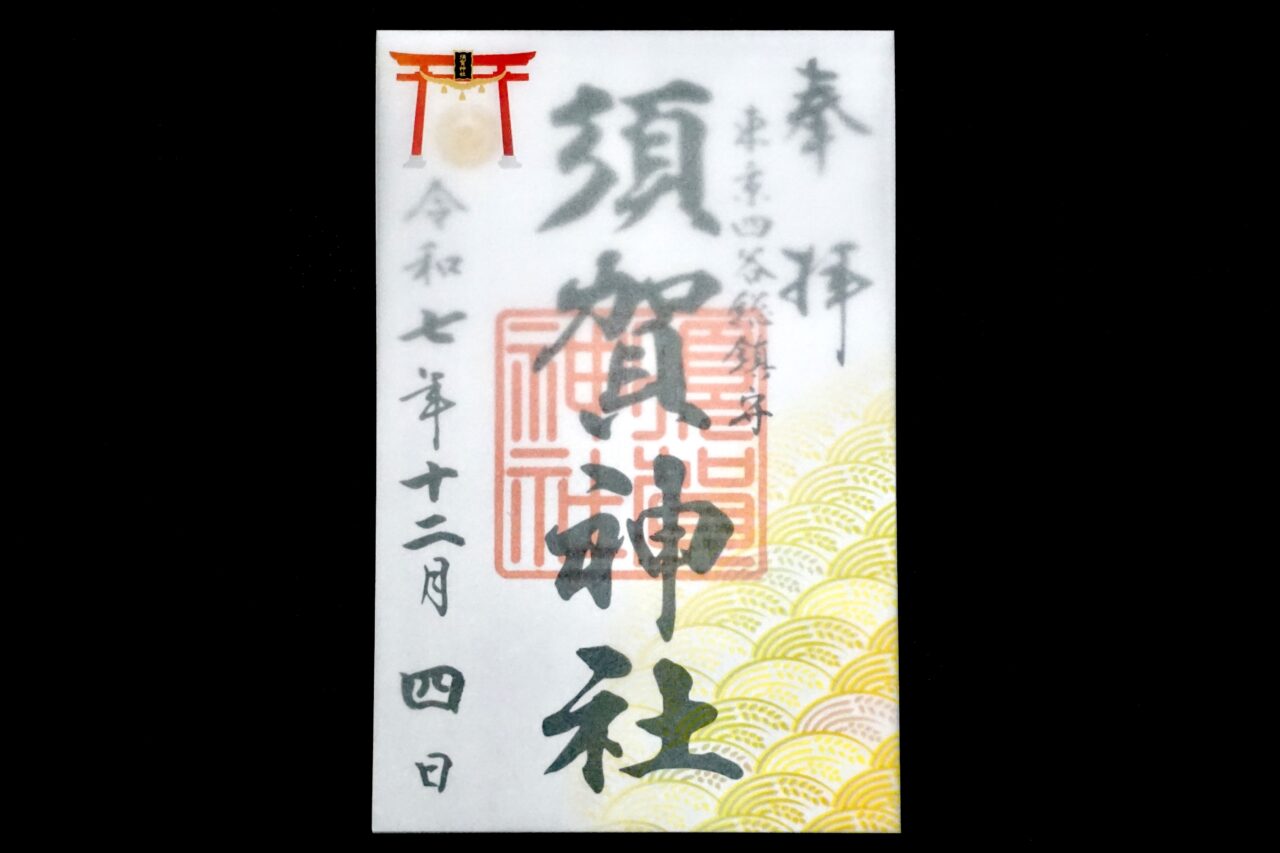 奉拝
東京四谷総鎮守
須賀神社
須賀神社
須賀神社
令和七年十二月四日